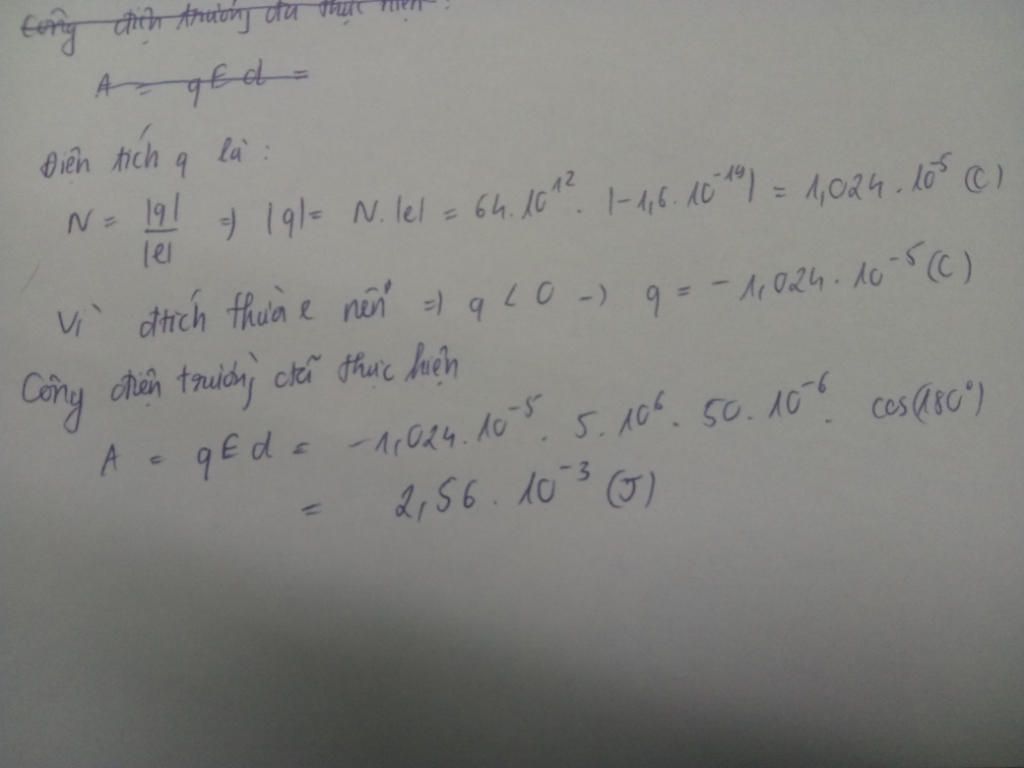 Công điện trường đã thực hiện :
A = qEd =
Điện tích q là :
N = |q|/|e| => |q| = N.|e| = 64.10^12 . |-1,6.10^-19| = 1,024.10^-5 (C)
Vì đtích thừa e nên => q < 0 -> q = -1,024.10^-5 (C)
Công điện trường đã thực hiện
A = qEd = -1,024.10^-5 . 5.10^6 . 50.10^-6 . cos(180°)
= 2,56.10^-3 (J)